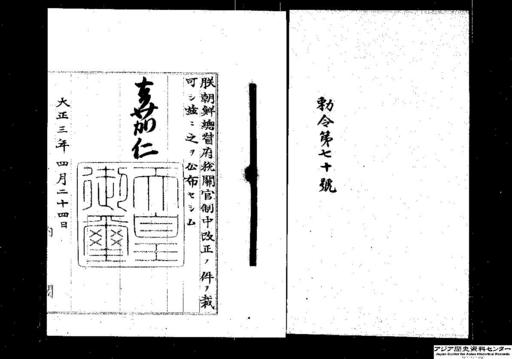 勅令第七十號
朕朝鮮總督府税關官制中改正ノ件ヲ裁
可シ茲ニ之ヲ公布セシム
嘉仁
天皇御璽
大正三年四月二十四日
内閣
アジア歴史資料センター
Japan Center for Asian Historical Records